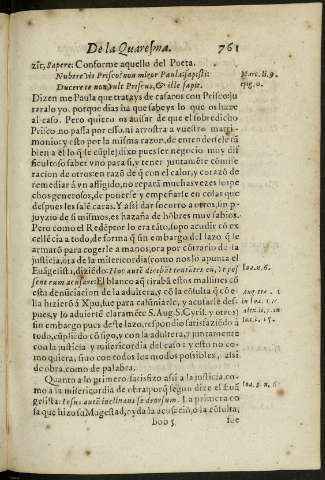 De la Quaresma. 761
zir, Sapere: Conforme aquello del Poeta.
Nubere vis Prisco: non miror Paula: sapisti: Mar. li. 9.
Ducere te non vult Priscus, & ille sapit. epig. 6.
Dizen me Paula que tratays de casaros con Prisco: ju
raralo yo. porque dias ha que sabeys lo que os haze
al caso. Pero quiero os auisar de que el sobredicho
Prisco no passa por esso, ni arrostra a vuestro matri-
monio: y esto por la misma razon, de entenderse le tã
bien a èl lo q̃ se cũple: dixo pues ser negocio muy dif
ficultoso saber vno para si, y tener juntamẽte cõmise
racion de otros: en razõ de q̃ con el calor, y corazõ de
remediar à vn affligido, no reparã muchas vezes los pe
chos generosos, de ponerse y empeñarse en cosas que
despues las sale caras. Y assi dar socorro a otros, sin per
juyzio de si mismos, es hazaña de hõbres muy sabios.
Pero como el Redẽptor lo era tãto, supo acudir cõ ex
cellẽcia a todo, de forma q̃ sin embargo del lazo q̃ le
armarõ para cogerle a manos, ora por cõtrario de la
justicia, ora de la misericordia (como nos lo apunta el
Euãgelista, diziẽdo: Hoc autẽ dicebãt tentãtes eũ, vt pos Ioa. n. 6.
sent eum accusare: El blanco aq̃ tirabã estos malsines cõ
esta denũciacion de la adultera, y cõ la cõsulta q̃ cõ e- Aug. tra.
lla hizierõ à Xpo, fue para calũniarle, y acusarle des- in Ioa.
pues, y lo aduierte claramẽte S. Aug. S. Cyril. y otros)
sin embargo pues deste lazo, respondio satisfaziẽdo à
todo, cũpliẽdo cõsigo, y con la adultera, y juntamente
con la justicia y misericordia del caso: y esto no co-
mo quiera, sino con todos los modos possibles, assi
de obra, como de palabra.
Quanto a lo primero satisfizo assi a la justicia, co-
mo a la misericordia de obra: porq̃ segun dize el Euã Ioa. 8. n. 6.
gelista: Iesus autẽ inclinans se deorsum. La primera co
sa que hizo su Magestad, oyda la acusaciõ, o la cõsulta,
bbb 5 fue